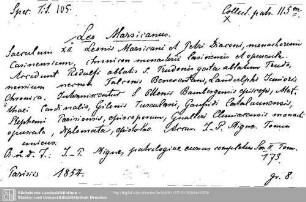 Spec. T.l. 105.
Collect. patr. 115 m
X
Leo Marsicanus.
Saeculum XI Leonis Marsicani et Petri Diaconi, monachorum
Casinensium, chronicon monasterii Casinensis et opuscula.
Accedunt Rudolfi abbatis S. Trudonis gesta abbatum Trudo-
nensium necnon Falconis Beneventani, Landulphi Junioris
Chronica. Intermiscentur S. Ottonis Bambergensis episcopi, Mat-
thaei Cardinalis, Gilonis Tusculani, Gaufridi Catalaunensis,
Stephani Parisiensis, episcoporum, Gualteri Cluniacensis monachi
opuscula, diplomata, epistolae. Accur. J.-P. Migne. Tomus
unicus.
J.-P. Migne, patrologiae cursus completus Ser. II Tom.
173.
Parisiis 1854.
gr. 8.